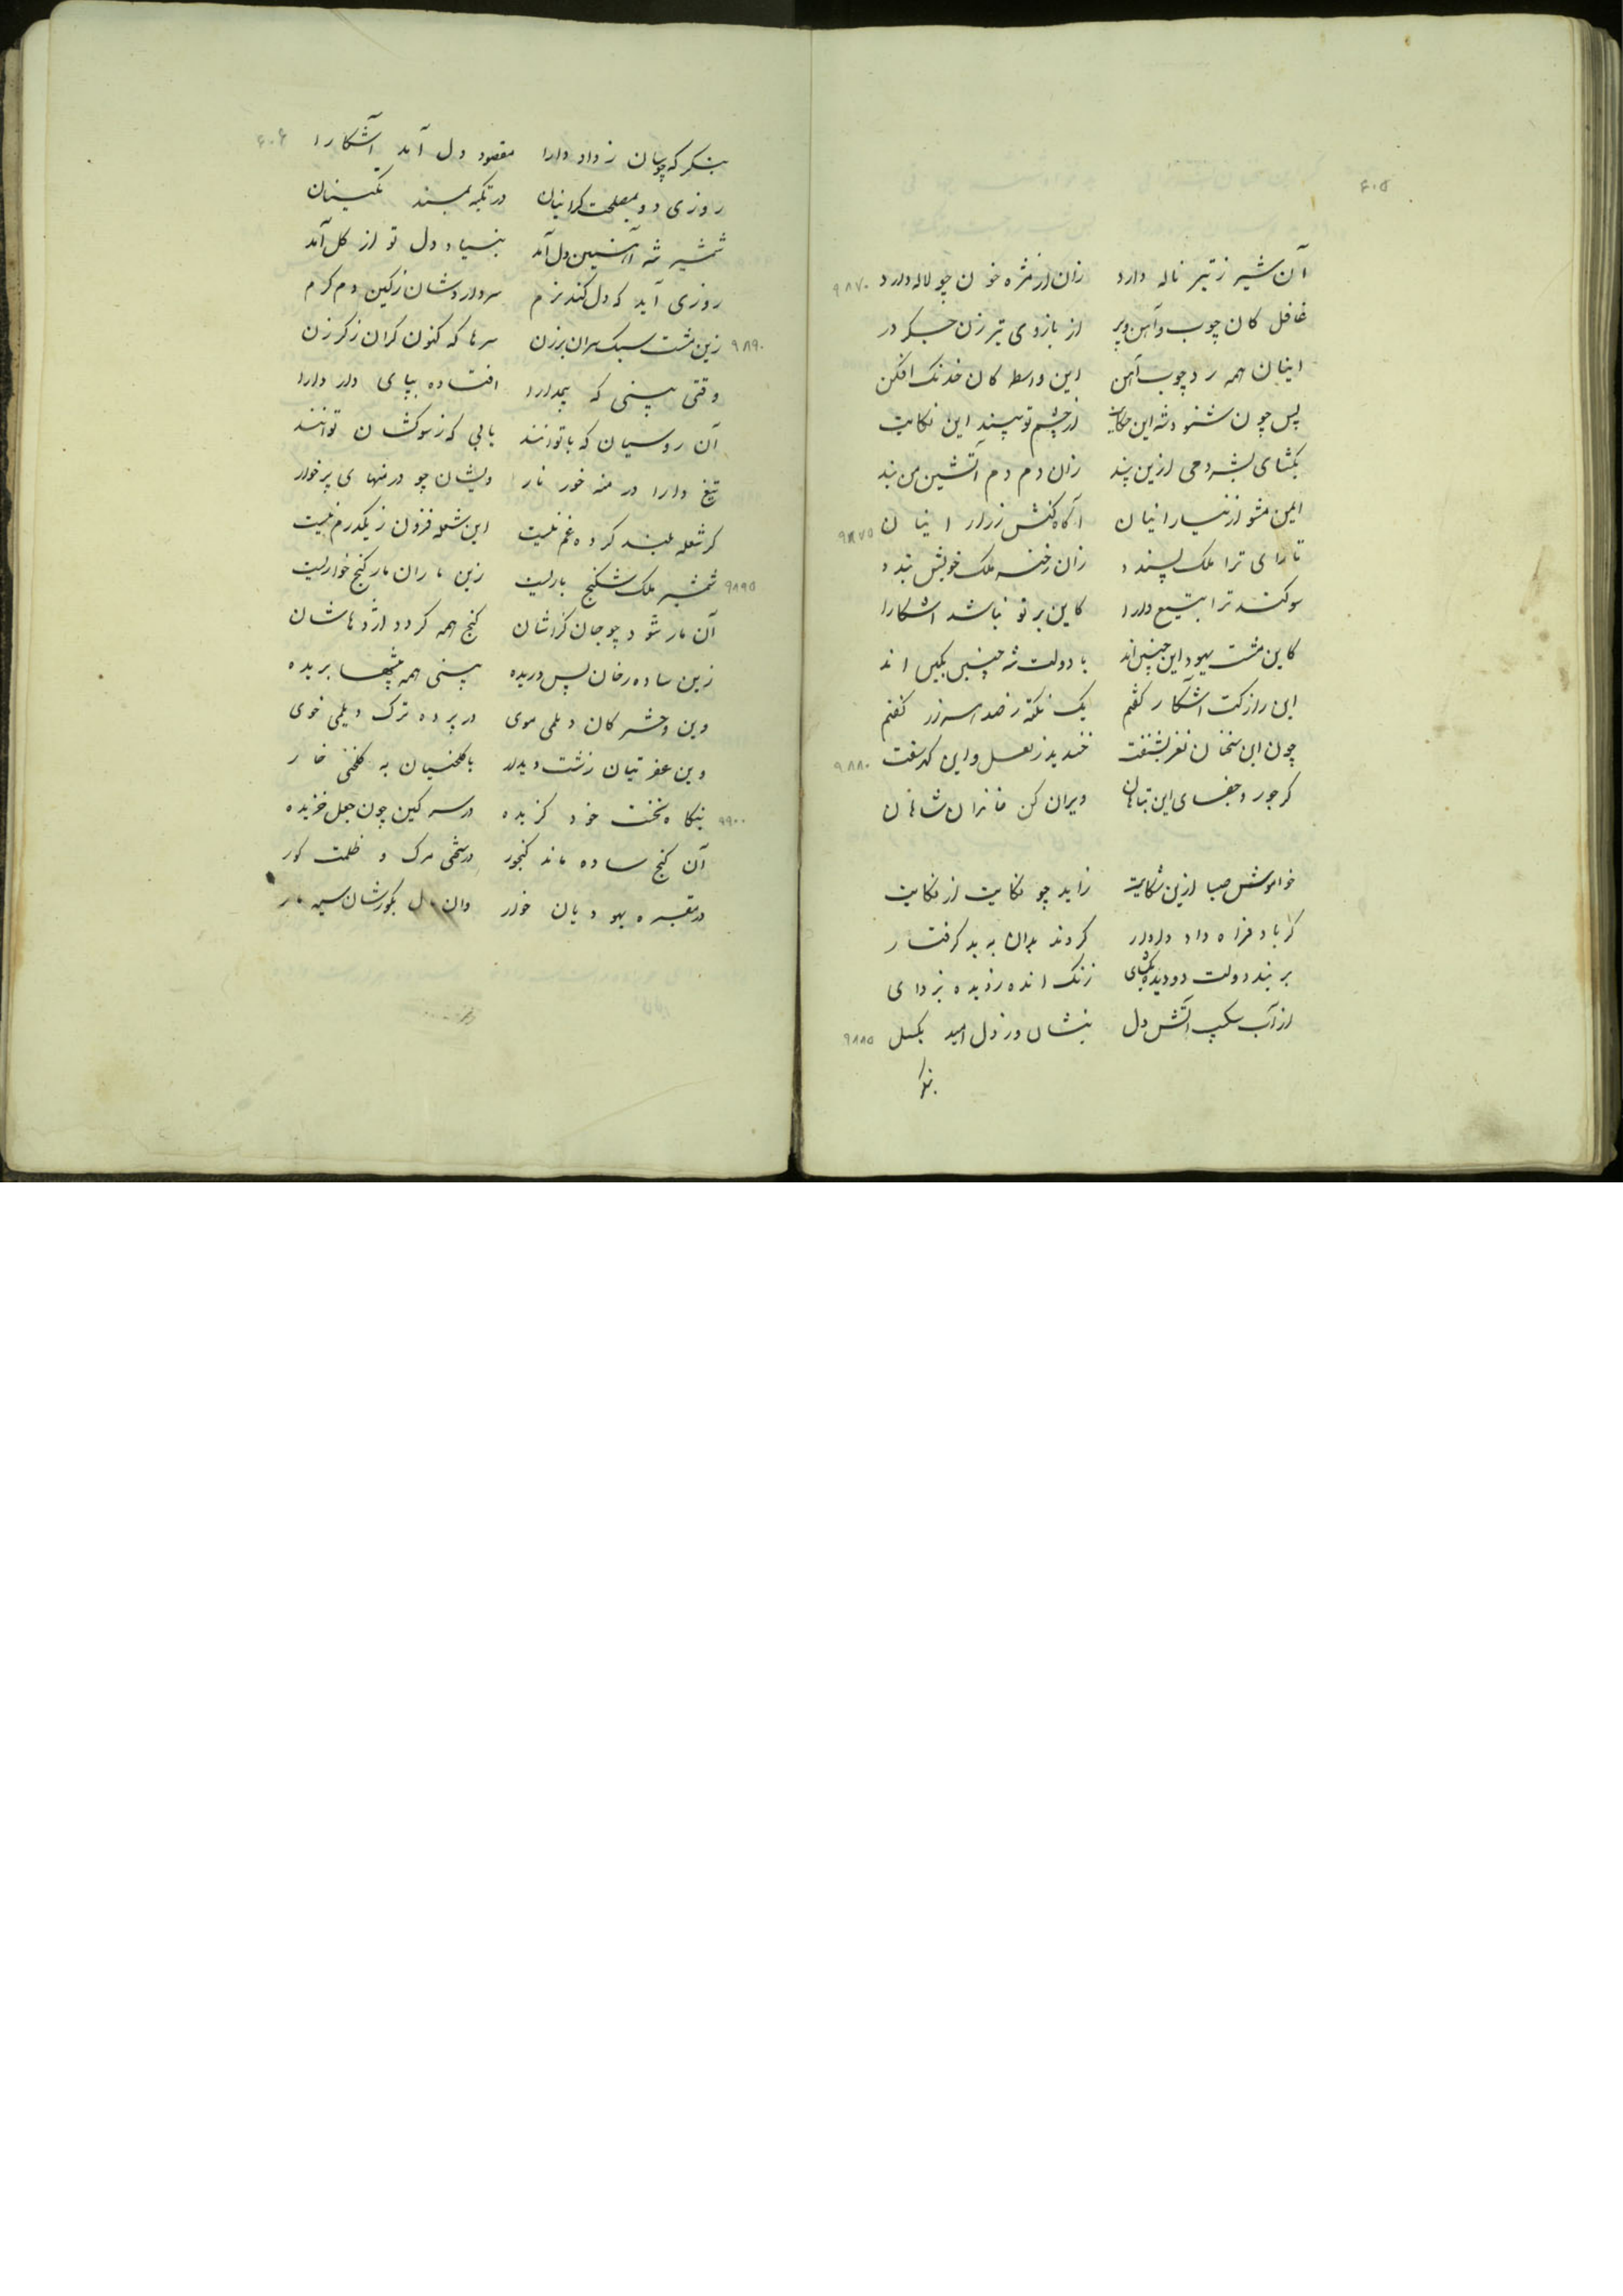 ۶۰۵
آن شیر ز تیر ناله دارد زان از مژه خون چو لاله دارد ۹۸۷۰
غافل کان چوب و آهن و پر از بازوی تیرزن جگر در
اینان همه رد چوب آهن این واسطه کان خدنک افکن
پس چون شنود شه این حکایت از چشم تو بیند این نکایت
بکشای بشه دمی ازین پند زان دم دم آتشین من بند
ایمن مشو از انیان آگاه کنش ز راز اینان ۹۸۷۵
تا رای ترا ملک پسندد زان رخنه ملک خویش بندد
سوکند ترا بتیغ دارا کاین بر تو نباشد اشکارا
کاین مشت یهود این چنین اند با دولت شه چنین بکین اند
این راز کت اشکار کفتم یک نکته ز صد اسرار نفتم
چون این سخنان نغز بشنفت خندید ز لعل و این کهر سفت ۹۸۸۰
کز جور و جفای این تباهان ویران کن خانزان شاهان
خواموش صبا ازین شکایت زاید چو نکایت از نکایت
کز باد فراه داد دادار کردند بدان به بد کرفتار
بر بند دولت دو دیده بکشای زنک انده ز دیده بزدای
از آب سکیب آتش دل بنشان وز دل امید بکسل ۹۸۸۵
بنکر
۶۰۶
بنکر که چسان ز داد دارا مقصود دل آید آشکارا
روزی دو بمصلحت کرانیان در تکیه بمسند نکینان
شمشیر شه آهنین دل آمد بنیاد دل تو از کل آمد
روزی آید که دل کند نرم سر دارد شان ز کین دم کرم
زین مشت سبک سران برزن سرها که کنون کران ز کرزن ۹۸۹۰
وقتی بینی که بیمدارا افتاده بپای دار دارا
آن روسیهان که با تو انند یابی که ز سوکشان توانند
تیغ دارا درمنه خور نار ویشان چو درمنهای پرخار
کر شعله بلند کرده غم نیست این شعله فزون ز یکدرم نیست
شمشیر ملک شکنج باریست زین ماران مار کنج خواریست ۹۸۹۵
آن مار شود چو جان کزاشان کنج همه کردد اژدهاشان
زین ساده رخان پس دریده بینی همه پشتها بریده
وین وحشرکان دیلمی موی در پرده ترک دیلمی خوی
وین عفرتیان زشت دیدار با کلخنیان به کلخنی خار
بنکاه تخت خود کزیده در سرکین چون جعل خزیده ۹۹۰۰
آن کنج ساده ماند کنجور در شمی مرک و ظلمت کور
در مقبره یهودیان خوار وان مال بکورشان سیه مار